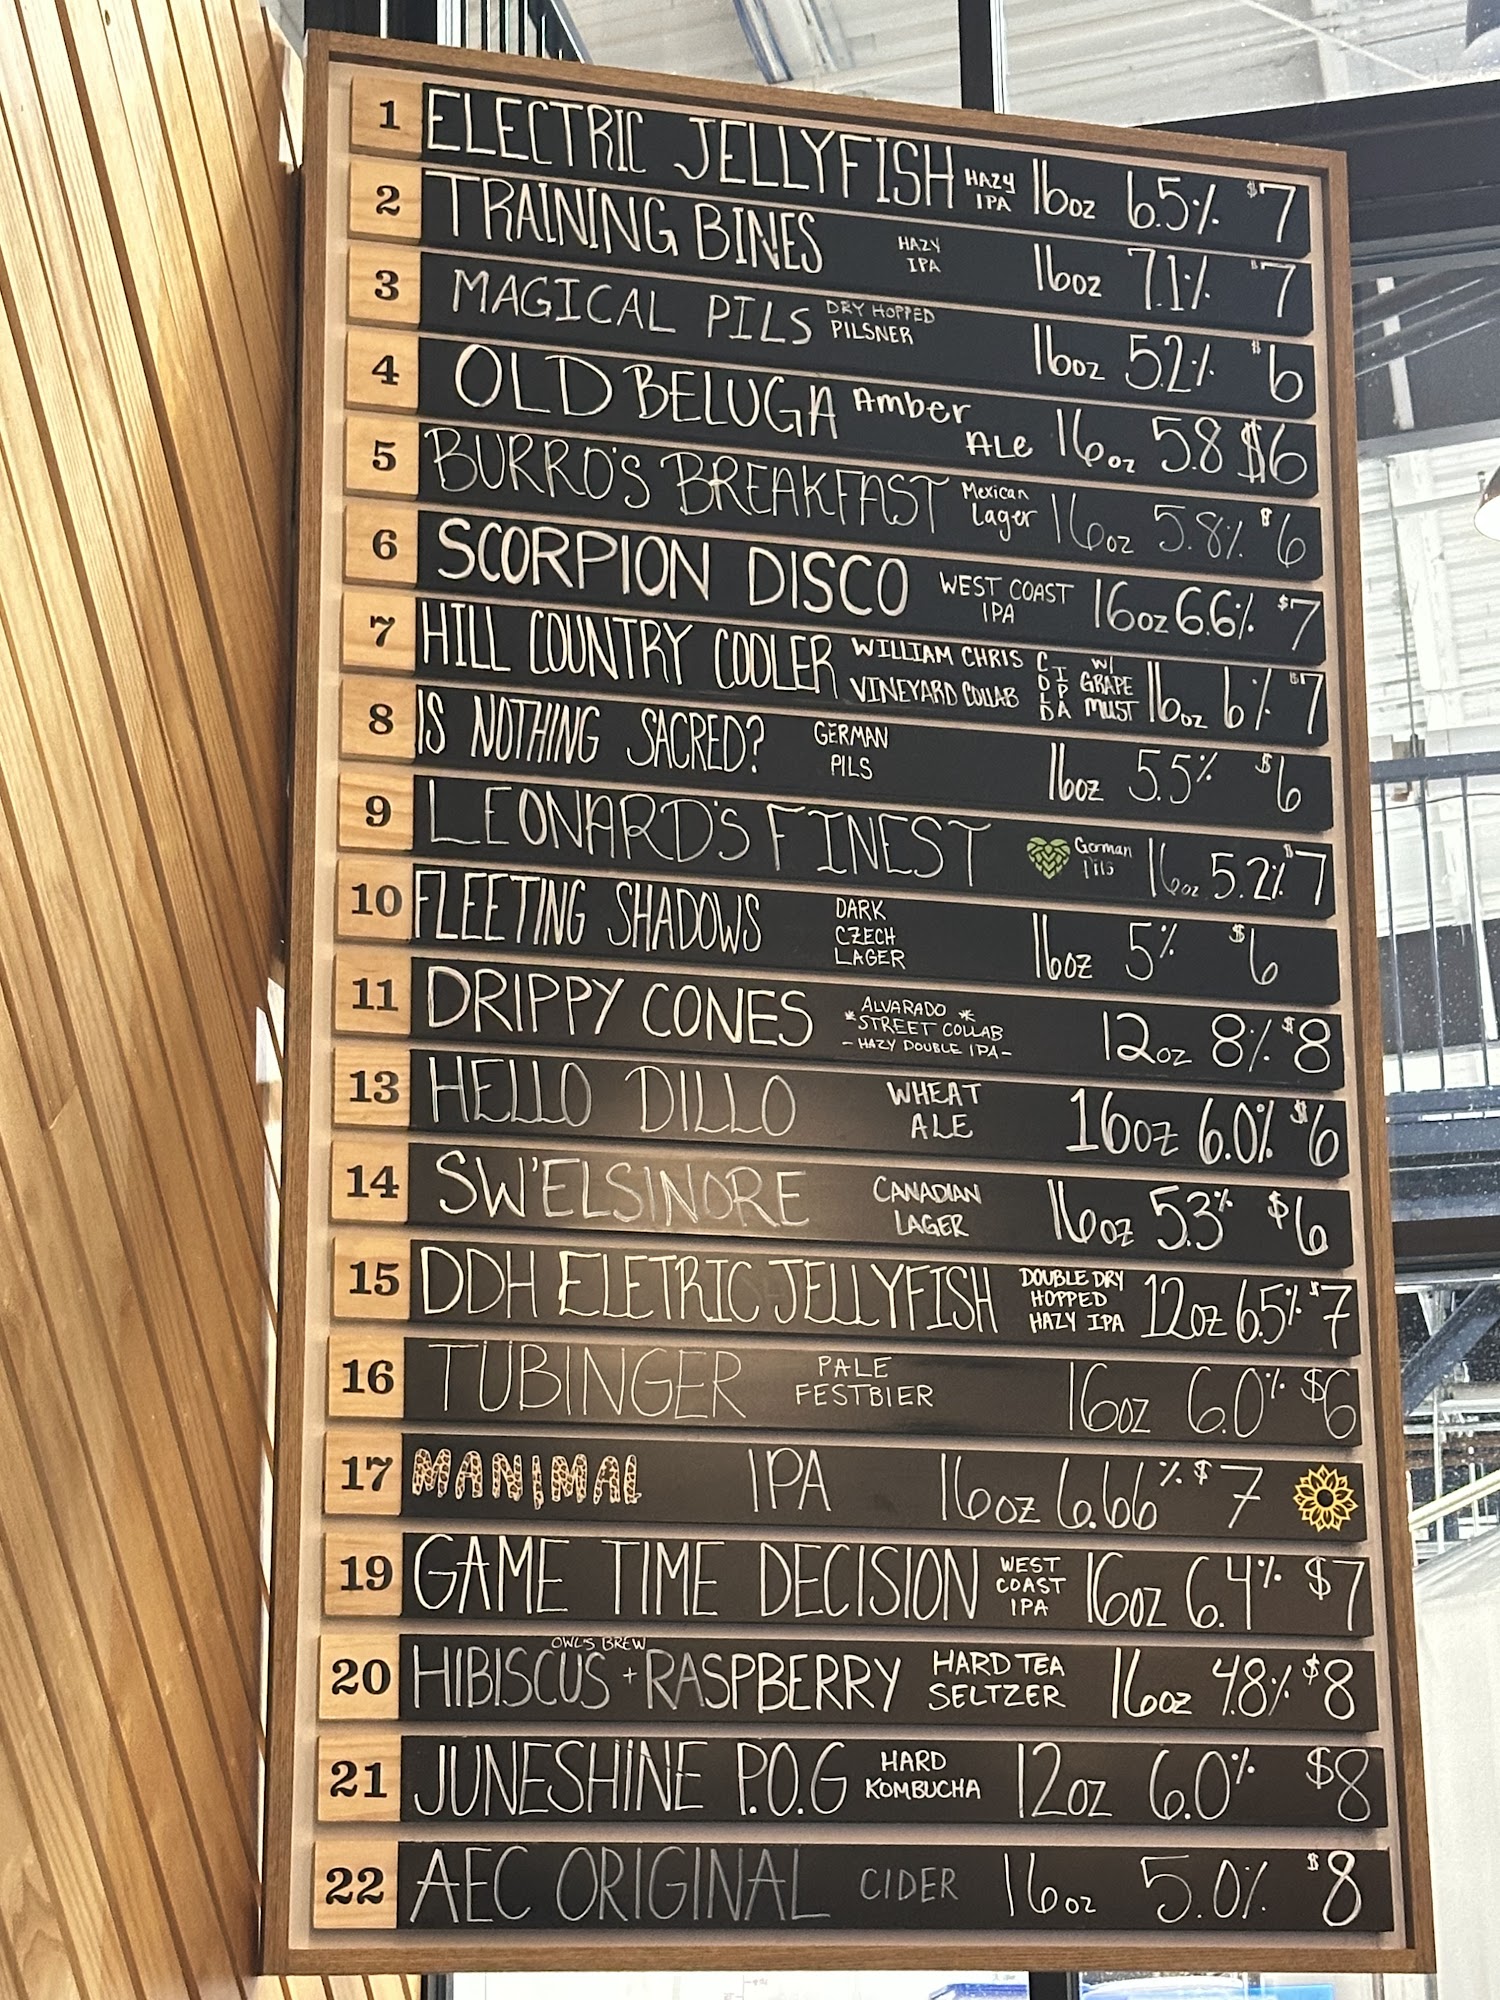 1 ELECTRIC JELLYFISH HAZY IPA 16oz 6.5% $7
2 TRAINING BINES HAZY IPA 16oz 7.1% $7
3 MAGICAL PILS DRY HOPPED PILSNER 16oz 5.2% $6
4 OLD BELUGA Amber ALe 16oz 5.8 $6
5 BURRO'S BREAKFAST Mexican Lager 16oz 5.8% $6
6 SCORPION DISCO WEST COAST IPA 16oz 6.6% $7
7 HILL COUNTRY COOLER WILLIAM CHRIS VINEYARD COLLAB COLD IPA W/ GRAPE MUST 16oz 6% $7
8 IS NOTHING SACRED? GERMAN PILS 16oz 5.5% $6
9 LEONARD'S FINEST German Pils 16oz 5.2% $7
10 FLEETING SHADOWS DARK CZECH LAGER 16oz 5% $6
11 DRIPPY CONES *ALVARADO STREET COLLAB* -HAZY DOUBLE IPA- 12oz 8% $8
13 HELLO DILLO WHEAT ALE 16oz 6.0% $6
14 SW'ELSINORE CANADIAN LAGER 16oz 5.3% $6
15 DDH ELETRIC JELLYFISH DOUBLE DRY HOPPED HAZY IPA 12oz 6.5% $7
16 TUBINGER PALE FESTBIER 16oz 6.0% $6
17 MANIMAL IPA 16oz 6.66% $7
19 GAME TIME DECISION WEST COAST IPA 16oz 6.4% $7
20 OWL'S BREW HIBISCUS + RASPBERRY HARD TEA SELTZER 16oz 4.8% $8
21 JUNESHINE P.O.G HARD KOMBUCHA 12oz 6.0% $8
22 AEC ORIGINAL CIDER 16oz 5.0% $8